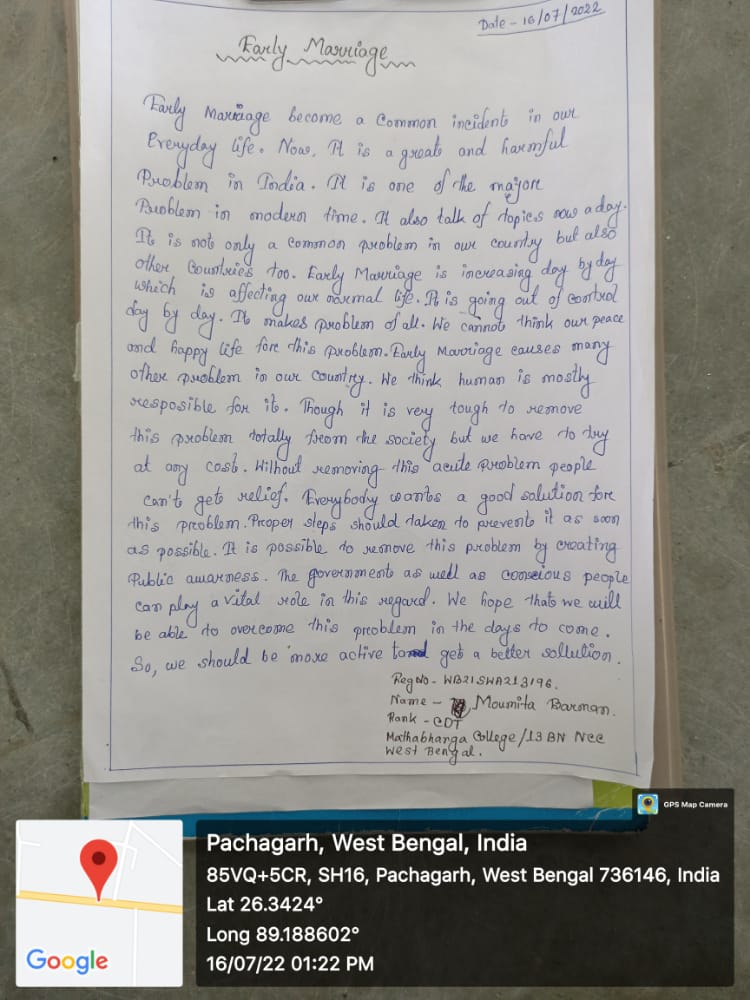 Date - 16/07/2022
Early Marriage
Early Marriage become a common incident in our
Everyday life. Now, It is a great and harmful
Problem in India. It is one of the major
Problem in modern time. It also talk of topics now a day.
It is not only a common problem in our country but also
other countries too. Early Marriage is increasing day by day
which is affecting our normal life. It is going out of control
day by day. It makes problem of all. We cannot think our peace
and happy life for this problem. Early Marriage causes many
other problem in our country. We think human is mostly
resposible for it. Though it is very tough to remove
this problem totally from the society but we have to try
at any cost. Without removing this acute problem people
can't get relief. Everybody wants a good solution for
this problem. Proper steps should taken to prevent it as soon
as possible. It is possible to remove this problem by creating
Public awarness. The government as well as conscious people
can play a vital role in this regard. We hope that we will
be able to overcome this problem in the days to come.
So, we should be more active to get a better sollution.
Reg No - WB21SWA213196.
Name - Moumita Barman.
Rank - CDT
Mathabhanga College/13 BN NCC
West Bengal.
GPS Map Camera
Pachagarh, West Bengal, India
85VQ+5CR, SH16, Pachagarh, West Bengal 736146, India
Lat 26.3424°
Long 89.188602°
16/07/22 01:22 PM
Google